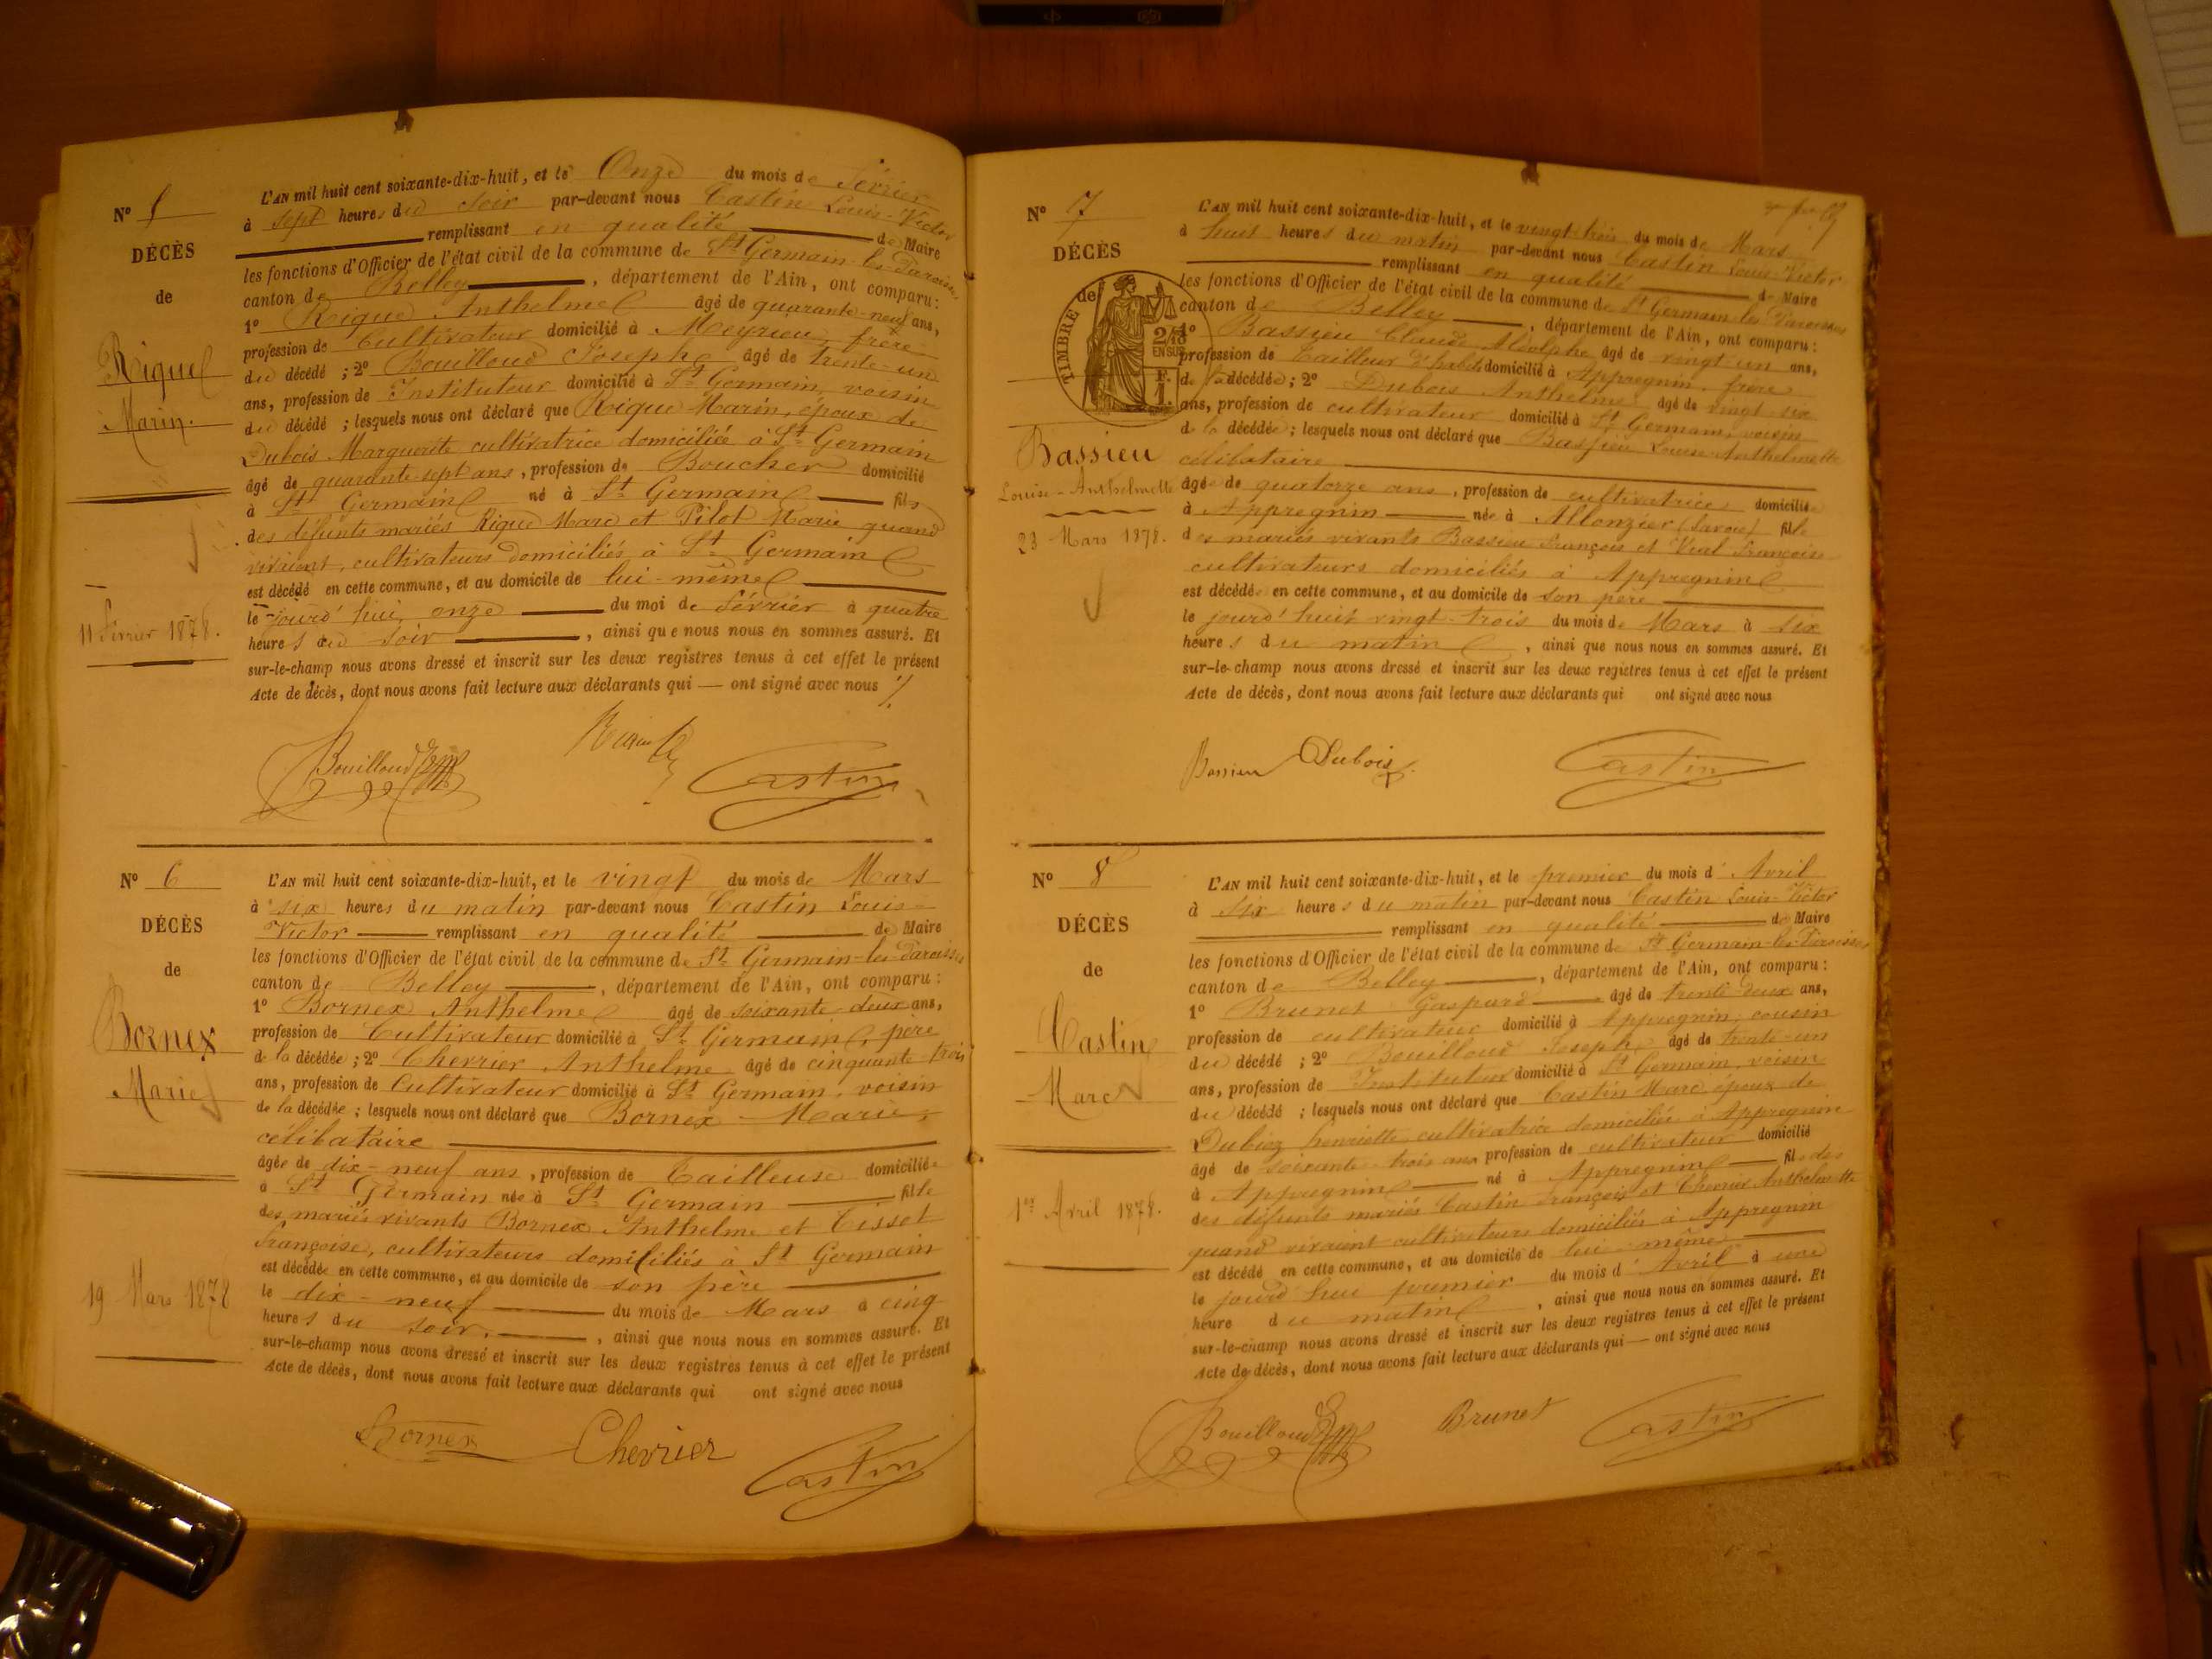 N°
DÉCÈS
de
Rique
Marin.
11 Février 1878.
L'AN mil huit cent soixante-dix-huit, et le Onze du mois de Février
à sept heures du soir par-devant nous Castin Louis-Victor
remplissant en qualité de Maire
les fonctions d'Officier de l'état civil de la commune de St Germain-les-Paroisses
canton de Belley, département de l'Ain, ont comparu:
1° Rique Anthelme âgé de quarante-neuf ans,
profession de Cultivateur domicilié à Meyrieu, frère
du décédé ; 2° Bouilloud Joseph âgé de trente-un
ans, profession de Instituteur domicilié à St Germain, voisin
du décédé ; lesquels nous ont déclaré que Rique Marin, époux de
Dubois Marguerite cultivatrice domiciliée à St Germain
âgé de quarante sept ans, profession de Boucher domicilié
à St Germain né à St Germain fils
des défunts mariés Rique Marc et Pilot Marie quand
vivaient, cultivateurs domiciliés à St Germain
est décédé en cette commune, et au domicile de lui-même
le jourd'hui onze du moi de Février à quatre
heures du soir, ainsi que nous nous en sommes assuré. Et
sur-le-champ nous avons dressé et inscrit sur les deux registres tenus à cet effet le présent
Acte de décès, dont nous avons fait lecture aux déclarants qui — ont signé avec nous
Bouilloud Castin
N° 6
DÉCÈS
de
Bornex
Marie
19 Mars 1878
L'AN mil huit cent soixante-dix-huit, et le vingt du mois de Mars
à six heures du matin par-devant nous Castin Louis-
Victor remplissant en qualité de Maire
les fonctions d'Officier de l'état civil de la commune de St Germain-les-Paroisses
canton de Belley, département de l'Ain, ont comparu :
1° Bornex Anthelme âgé de soixante-deux ans,
profession de Cultivateur domicilié à St Germain, père
de la décédée ; 2° Chevrier Anthelme âgé de cinquante trois
ans, profession de Cultivateur domicilié à St Germain, voisin
de la décédée ; lesquels nous ont déclaré que Bornex Marie,
célibataire
âgée de dix-neuf ans, profession de Tailleuse domiciliée
à St Germain née à St Germain fille
des mariés vivants Bornex Anthelme et Tisset
Françoise, cultivateurs domiciliés à St Germain
est décédée en cette commune, et au domicile de son père
le dix-neuf du mois de Mars à cinq
heures du soir, ainsi que nous nous en sommes assuré. Et
sur-le-champ nous avons dressé et inscrit sur les deux registres tenus à cet effet le présent
Acte de décès, dont nous avons fait lecture aux déclarants qui ont signé avec nous
Bornex Chevrier Castin
N° 7
DÉCÈS
TIMBRE de
2/10
EN SUS
F.
1.
Bassieu
Louise-Anthelmette
23 Mars 1878.
L'AN mil huit cent soixante-dix-huit, et le vingt-trois du mois de Mars
à huit heures du matin par-devant nous Castin Louis-Victor
remplissant en qualité de Maire
les fonctions d'Officier de l'état civil de la commune de St Germain-les-Paroisses
canton de Belley, département de l'Ain, ont comparu :
1° Bassieu Claude Adolphe âgé de vingt-un ans,
profession de Tailleur d'habits domicilié à Appregnin, frère
de la décédée ; 2° Dubois Anthelme âgé de vingt-six
ans, profession de cultivateur domicilié à St Germain, voisin
de la décédée ; lesquels nous ont déclaré que Bassieu Louise-Anthelmette
célibataire
âgée de quatorze ans, profession de cultivatrice domiciliée
à Appregnin née à Allonzier (Savoie) fille
des mariés vivants Bassieu François et Vial Françoise
cultivateurs domiciliés à Appregnin
est décédée en cette commune, et au domicile de son père
le jourd'huit vingt-trois du mois de Mars à six
heures du matin, ainsi que nous nous en sommes assuré. Et
sur-le-champ nous avons dressé et inscrit sur les deux registres tenus à cet effet le présent
Acte de décès, dont nous avons fait lecture aux déclarants qui ont signé avec nous
Bassieu Dubois Castin
N° 8
DÉCÈS
de
Castin
Marc
1er Avril 1878.
L'AN mil huit cent soixante-dix-huit, et le premier du mois d'Avril
à six heures du matin par-devant nous Castin Louis-Victor
remplissant en qualité de Maire
les fonctions d'Officier de l'état civil de la commune de St Germain-les-Paroisses
canton de Belley, département de l'Ain, ont comparu :
1° Brunet Gaspard âgé de trente-deux ans,
profession de cultivateur domicilié à Appregnin, cousin
du décédé ; 2° Bouilloud Joseph âgé de trente-un
ans, profession de Instituteur domicilié à St Germain, voisin
du décédé ; lesquels nous ont déclaré que Castin Marc époux de
Dubiez henriette cultivatrice domiciliée à Appregnin
âgé de soixante-trois ans profession de cultivateur domicilié
à Appregnin né à Appregnin fils des
des défunts mariés Castin François et Chevrier Anthelmette
quand vivaient cultivateurs domiciliés à Appregnin
est décédé en cette commune, et au domicile de lui-même
le jourd'hui premier du mois d'Avril à une
heure du matin, ainsi que nous nous en sommes assuré. Et
sur-le-champ nous avons dressé et inscrit sur les deux registres tenus à cet effet le présent
Acte de décès, dont nous avons fait lecture aux déclarants qui — ont signé avec nous
Bouilloud Brunet Castin